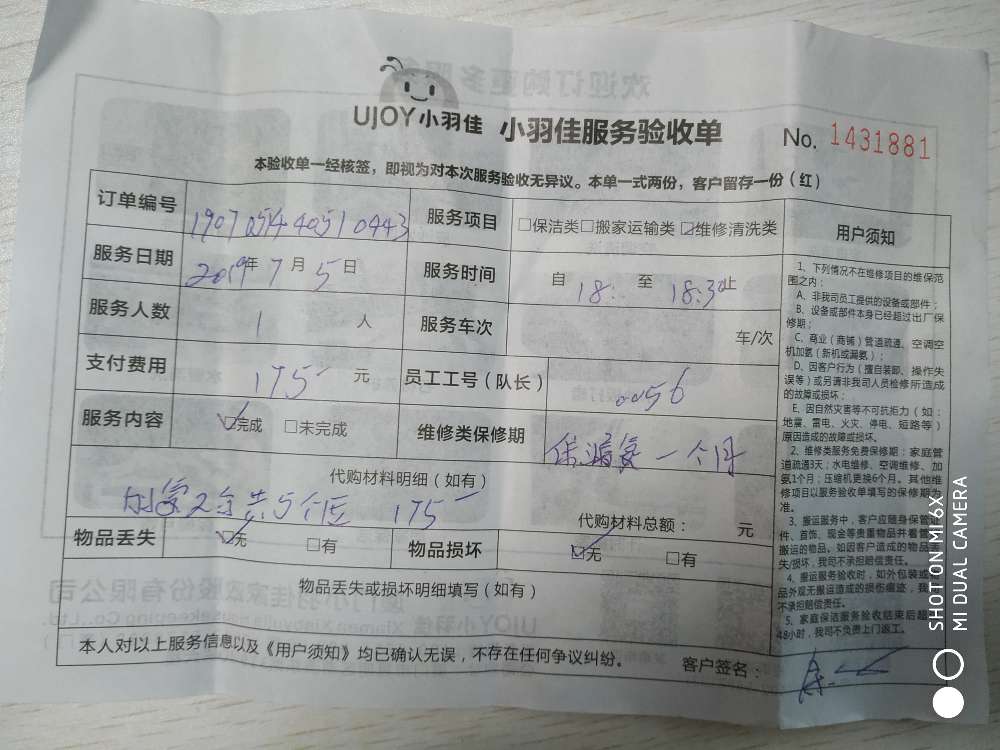 UJOY小羽佳 小羽佳服务验收单 No. 1431881
本验收单一经核签，即视为对本次服务验收无异议。本单一式两份，客户留存一份（红）
订单编号 服务项目 □保洁类□搬家运输类☑维修清洗类 用户须知
服务日期 2019年 7 月 5 日 服务时间 自 18: 至 18:30止
服务人数 1 人 服务车次 车/次
支付费用 175 元 员工工号（队长） 0056
服务内容 ☑完成 □未完成 维修类保修期 保漏氨一个月
代购材料明细（如有）
共5个压 175
代购材料总额： 元
物品丢失 ☑无 □有 物品损坏 ☑无 □有
物品丢失或损坏明细填写（如有）
本人对以上服务信息以及《用户须知》均已确认无误，不存在任何争议纠纷。 客户签名：
1、下列情况不在维修项目的维保范
围之内：
A、非我司员工提供的设备或部件；
B、设备或部件本身已经超过出厂保
修期；
C、商业（商铺）管道疏通、空调空
机加氨（新机或漏氨）；
D、因客户行为（擅自装卸、操作失
误等）或另请非我司人员检修所造成
的故障或损坏；
E、因自然灾害等不可抗拒力（如：
地震、雷电、火灾、停电、短路等）
原因造成的故障或损坏。
2、维修类服务免费保修期：家庭管
道疏通3天；水电维修、空调维修、加
氨1个月；压缩机更换6个月。其他维
修项目以服务验收单填写的保修期为
准。
3、搬运服务中，客户应随身保管证
件、首饰、现金等贵重物品并看管
搬运的物品。如因客户造成的物品丢
失/损坏，我司不承担赔偿责任。
4、搬运服务验收时，如外包装或
品外观无搬运造成的损伤痕迹，我
不承担赔偿责任。
5、家庭保洁服务验收结束后超
48小时，我司不负责上门返工。
SHOT ON MI 6X
MI DUAL CAMERA